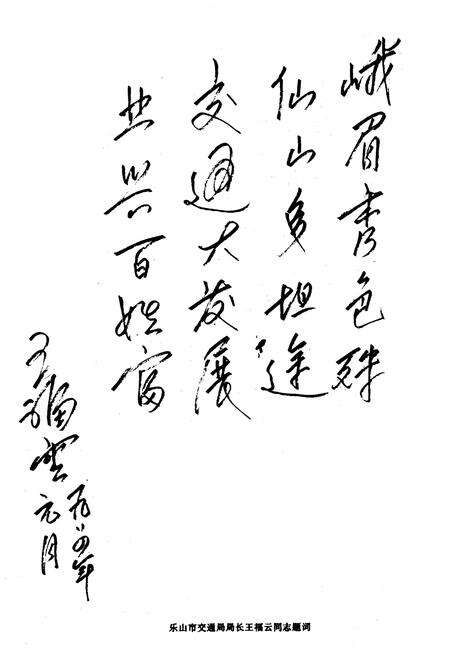 峨眉秀色殊
仙山多坦途
交通大发展
业兴百姓富
王福云
九八四年
元月
乐山市交通局局长王福云同志题词